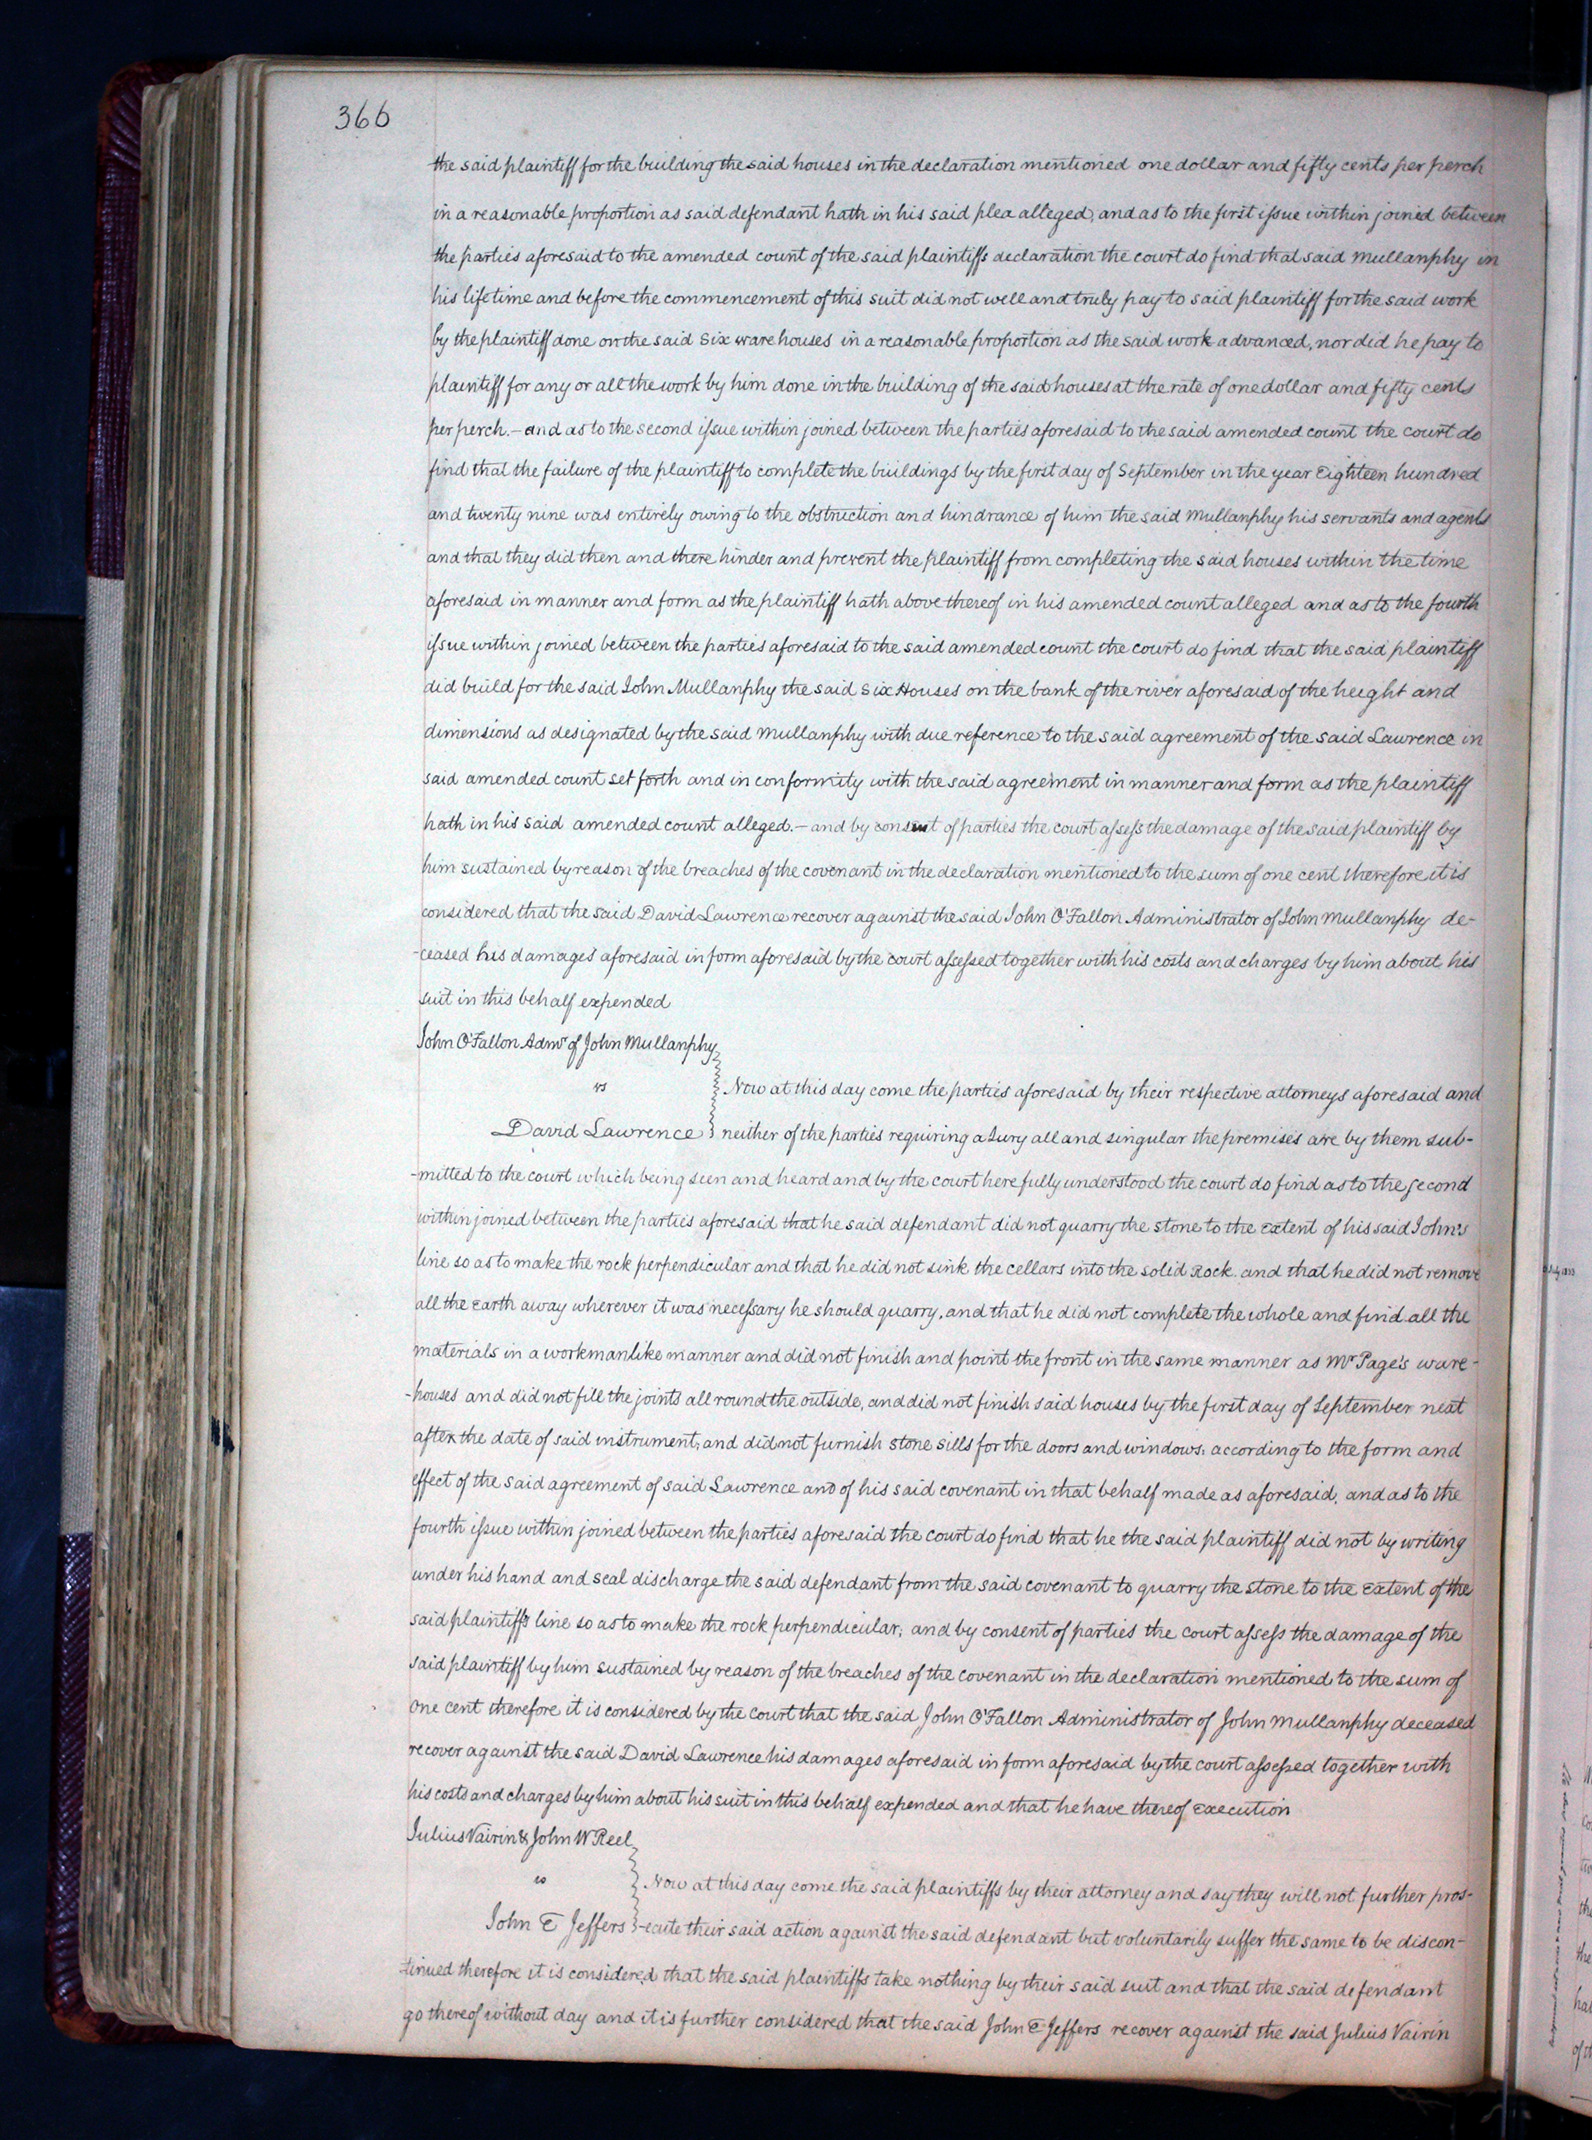 366
the said plaintiff for the building the said houses in the declaration mentioned one dollar and fifty cents per perch
in a reasonable proportion as said defendant hath in his said plea alleged, and as to the first issue within joined between
the parties aforesaid to the amended count of the said plaintiffs declaration the court do find that said Mullanphy in
his lifetime and before the commencement of this suit did not well and truly pay to said plaintiff for the said work
by the plaintiff done on the said six ware houses in a reasonable proportion as the said work advanced, nor did he pay to
plaintiff for any or all the work by him done in the building of the said houses at the rate of one dollar and fifty cents
per perch. - and as to the second issue within joined between the parties aforesaid to the said amended count the court do
find that the failure of the plaintiff to complete the buildings by the first day of September in the year Eighteen hundred
and twenty nine was entirely owing to the obstruction and hindrance of him the said Mullanphy his servants and agents
and that they did then and there hinder and prevent the plaintiff from completing the said houses within the time
aforesaid in manner and form as the plaintiff hath above thereof in his amended count alleged and as to the fourth
issue within joined between the parties aforesaid to the said amended count the court do find that the said plaintiff
did build for the said John Mullanphy the said six Houses on the bank of the river aforesaid of the height and
dimensions as designated by the said Mullanphy with due reference to the said agreement of the said Lawrence in
said amended count set forth and in conformity with the said agreement in manner and form as the plaintiff
hath in his said amended count alleged. - and by consent of parties the court assess the damage of the said plaintiff by
him sustained by reason of the breaches of the covenant in the declaration mentioned to the sum of one cent therefore it is
considered that the said David Lawrence recover against the said John O'Fallon Administrator of John Mullanphy de-
-ceased his damages aforesaid in form aforesaid by the court assessed together with his costs and charges by him about his
suit in this behalf expended
John O'Fallon Admr of John Mullanphy
vs
Now at this day come the parties aforesaid by their respective attorneys aforesaid and
David Lawrence neither of the parties requiring a Jury all and singular the premises are by them sub-
-mitted to the court which being seen and heard and by the court here fully understood the court do find as to the second
within joined between the parties aforesaid that he said defendant did not quarry the stone to the Extent of his said John's
line so as to make the rock perpendicular and that he did not sink the cellars into the solid Rock. and that he did not remove
all the Earth away wherever it was necessary he should quarry, and that he did not complete the whole and find all the
materials in a workmanlike manner and did not finish and point the front in the same manner as Mr Page's ware-
-houses and did not fill the joints all round the outside, and did not finish said houses by the first day of September next
after the date of said instrument, and did not furnish stone sills for the doors and windows, according to the form and
effect of the said agreement of said Lawrence and of his said covenant in that behalf made as aforesaid, and as to the
fourth issue within joined between the parties aforesaid the court do find that he the said plaintiff did not by writing
under his hand and seal discharge the said defendant from the said covenant to quarry the stone to the Extent of the
said plaintiffs line so as to make the rock perpendicular; and by consent of parties the court assess the damage of the
said plaintiff by him sustained by reason of the breaches of the covenant in the declaration mentioned to the sum of
one cent therefore it is considered by the court that the said John O'Fallon Administrator of John Mullanphy deceased
recover against the said David Lawrence his damages aforesaid in form aforesaid by the court assessed together with
his costs and charges by him about his suit in this behalf expended and that he have thereof Execution
Julius Vairin & John W Reel
vs
Now at this day come the said plaintiffs by their attorney and say they will not further pros-
John E Jeffers -ecute their said action against the said defendant but voluntarily suffer the same to be discon-
-tinued therefore it is considered that the said plaintiffs take nothing by their said suit and that the said defendant
go thereof without day and it is further considered that the said John E Jeffers recover against the said Julius Vairin